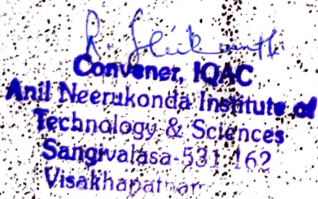 Convener, IQAC
Anil Neerukonda Institute of
Technology & Sciences
Sangivalasa-531 162
Visakhapatnam